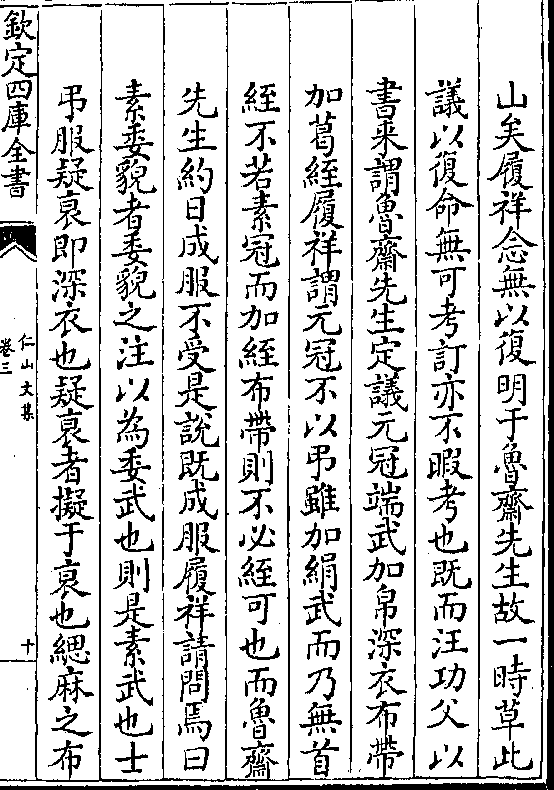 山矣履祥念無以復明于魯齋先生故一時草此
議以復命無可考訂亦不暇考也既而汪功父以
書來謂魯齋先生定議元冠端武加帛深衣布帶
加葛絰履祥謂元冠不以弔雖加絹武而乃無首
絰不若素冠而加絰布帶則不必絰可也而魯齋
先生約日成服不受是說既成服履祥請問焉曰
素委貌者委貌之注以為委武也則是素武也士
弔服疑衰即深衣也疑衰者擬于衰也緦麻之布
欽定四庫全書
仁山文集
卷三
十